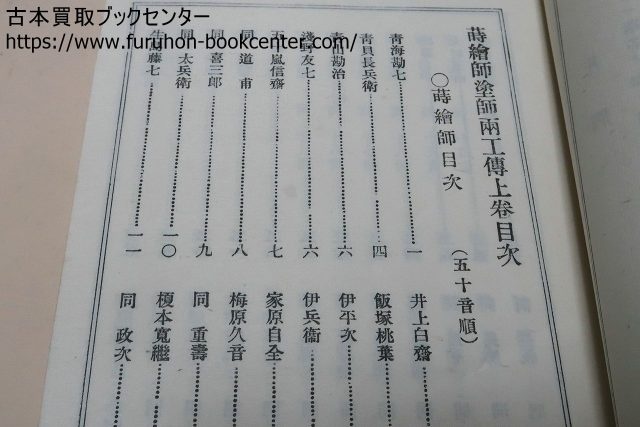 古本買取ブックセンター
https://www.furuhon-bookcenter.com/
蒔繪師塗師兩工傳上卷目次
(五十音順)
○蒔繪師目次
青海勘七 一
青貝長兵衛 四
青山勘治 六
淺野友七 六
五十嵐信齋 七
同 道甫 八
同 喜三郎 九
同 太兵衛 一〇
藤七 一一
井上白齋
飯塚桃葉
伊平次
伊兵衞
家原自全
梅原久音
同 重壽
榎本寬繼
同 政次